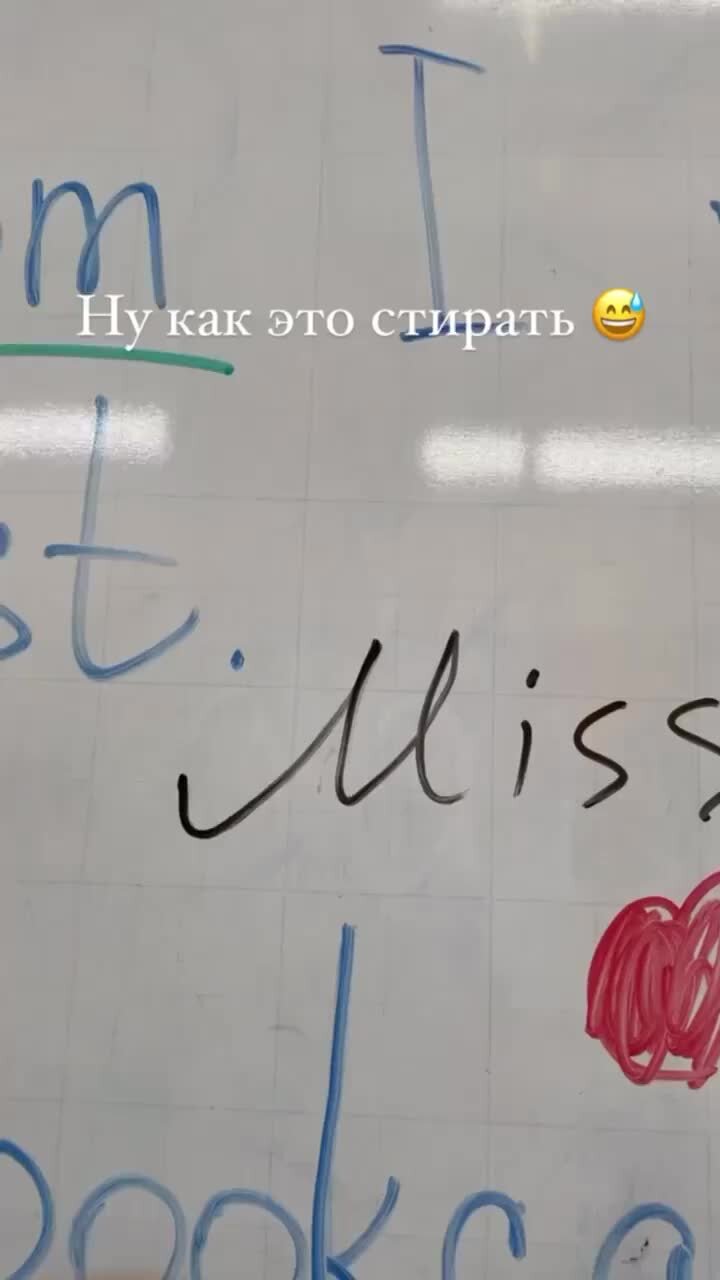 m I
Ну как это стирать 😅
st.
Miss